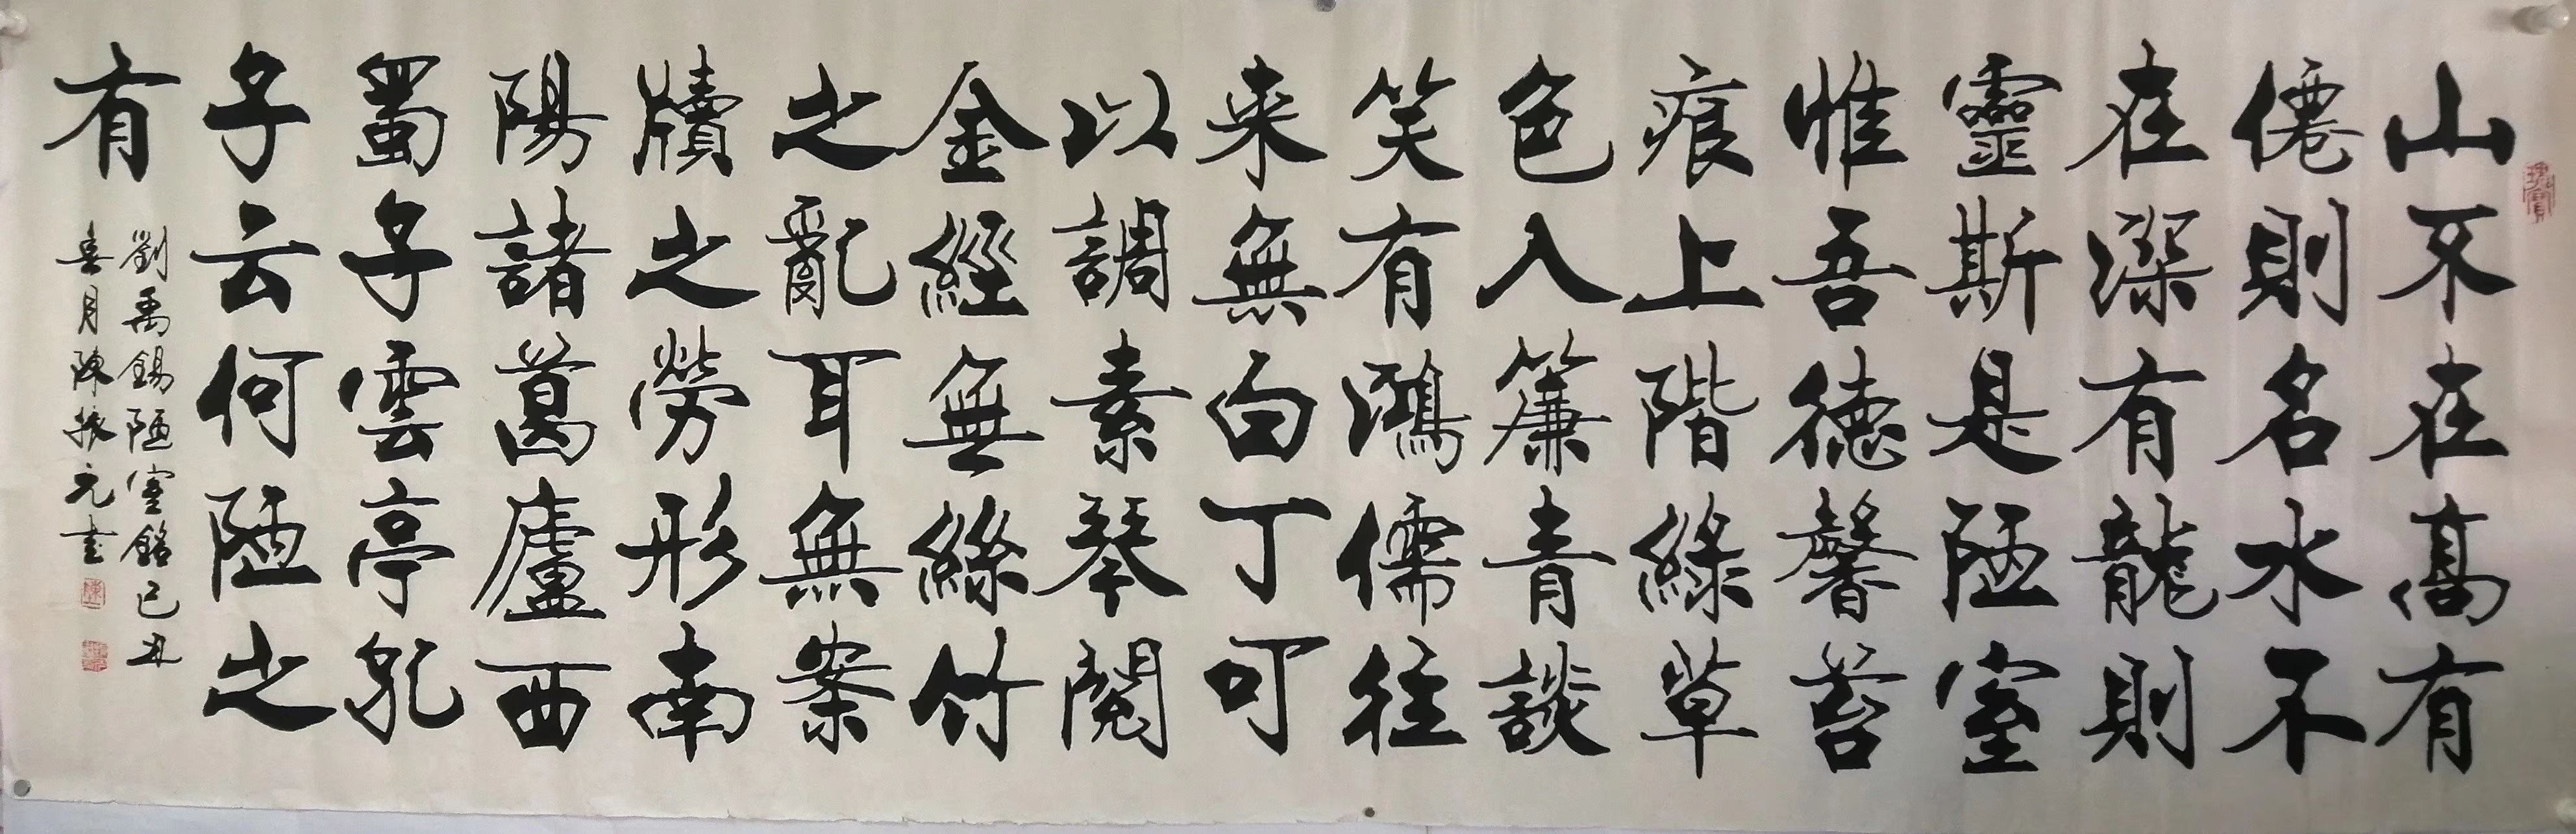 山不在高有
僊則名水不
在深有龍則
靈斯是陋室
惟吾德馨苔
痕上階綠草
色入簾青談
笑有鴻儒往
来無白丁可
以調素琴閱
金經無絲竹
之亂耳無案
牘之勞形南
陽諸葛廬西
蜀子雲亭孔
子云何陋之
有
劉禹錫陋室銘己丑
喜月陳振元書